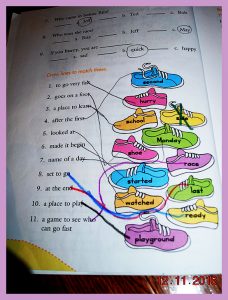 7. Who came to school
a. Jeff b. Ted c. Rick
8. Who won the race?
a. Rick b. Jeff c. May
9. If you hurry, you are
a. sad b. quick c. happy
Draw lines to match these.
1. to go very fast
2. goes on a foot
3. a place to learn
4. after the first
5. looked at
6. made it begin
7. name of a day
8. set to go
9. at the end
10. a place to play
11. a game to see who
can go fast
second
hurry
school
Monday
shoe
race
started
last
watched
ready
playground